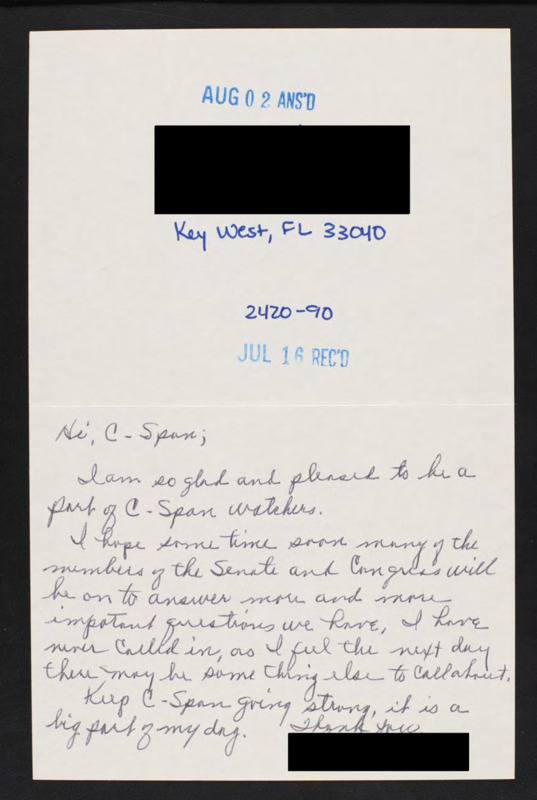 AUG 02 ANS'D
Key West, FL 33040
2420-90
JUL 16 REC'D
Hi, C-Span;
I am so glad and pleased to be a
part of C-Span watchers.
I hope some time soon many of the
members of the Senate and Congress will
be on to answer more and more
important questions we have, I have
never called in, as I feel the next day
there may be some thing else to call about.
Keep C-Span going strong, it is a
big part of my day. Thank You